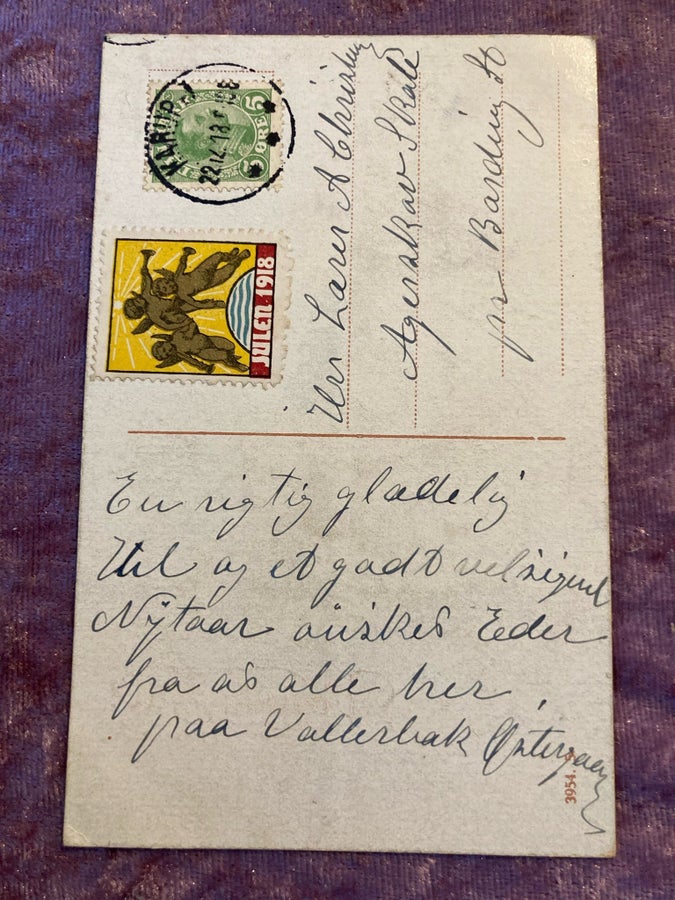 KARUP
22.12.18
5 ØRE
SULEN 1918
Hr Lars A Christen
Agerskov Skole
pr Barding St
En rigtig glædelig
Jul og et godt velsignet
Nytaar ønskes Eder
fra os alle her,
paa Vallerbæk Østergaard
3954.